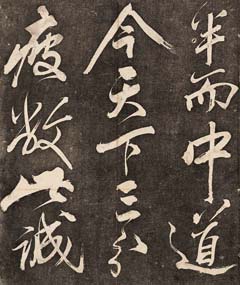 半而中道
今天下三分
疲敝此誠